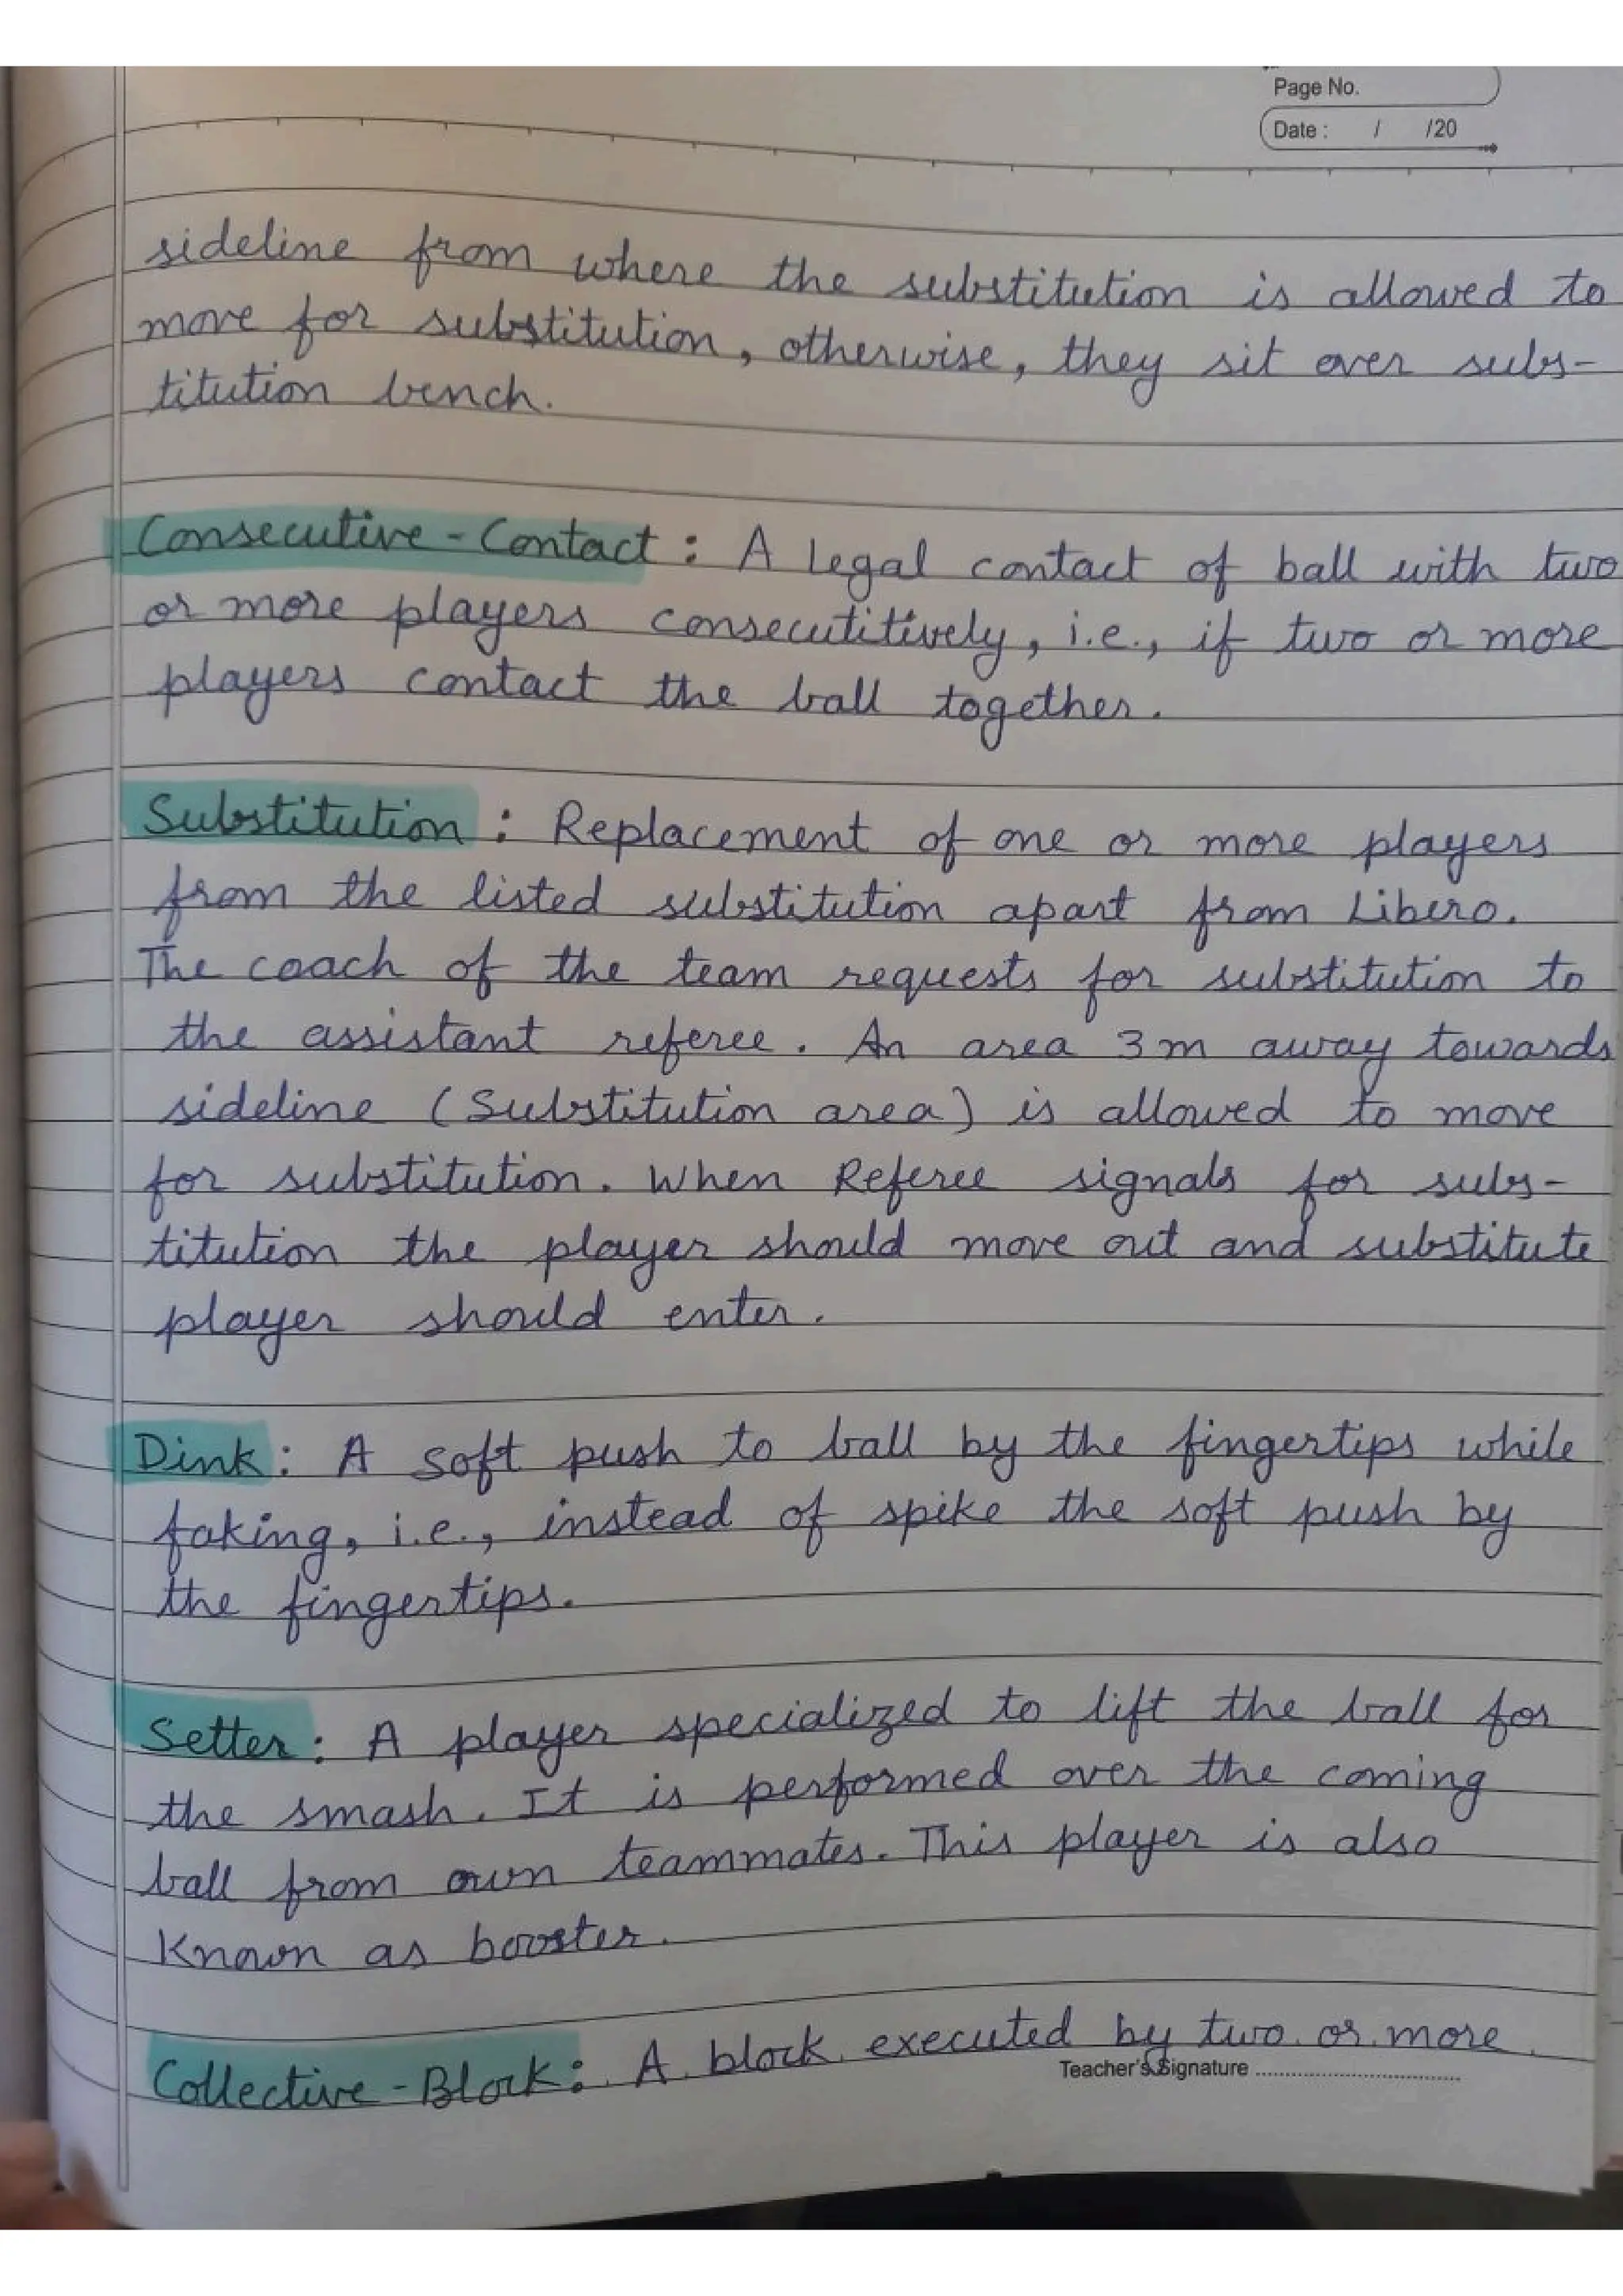 Page No.
Date : / /20
sideline from where the substitution is allowed to
move for substitution, otherwise, they sit over subs-
titution bench.
Consecutive - Contact : A legal contact of ball with two
or more players consecutitively, i.e., if two or more
players contact the ball together.
Substitution : Replacement of one or more players
from the listed substitution apart from Libero.
The coach of the team requests for substitution to
the assistant referee. An area 3m away towards
sideline (Substitution area) is allowed to move
for substitution. When Referee signals for subs-
titution the player should move out and substitute
player should enter.
Dink : A soft push to ball by the fingertips while
faking, i.e., instead of spike the soft push by
the fingertips.
Setter : A player specialized to lift the ball for
the smash. It is performed over the coming
ball from own teammates. This player is also
Known as booster.
Collective - Block : A block executed by two or more
Teacher's Signature